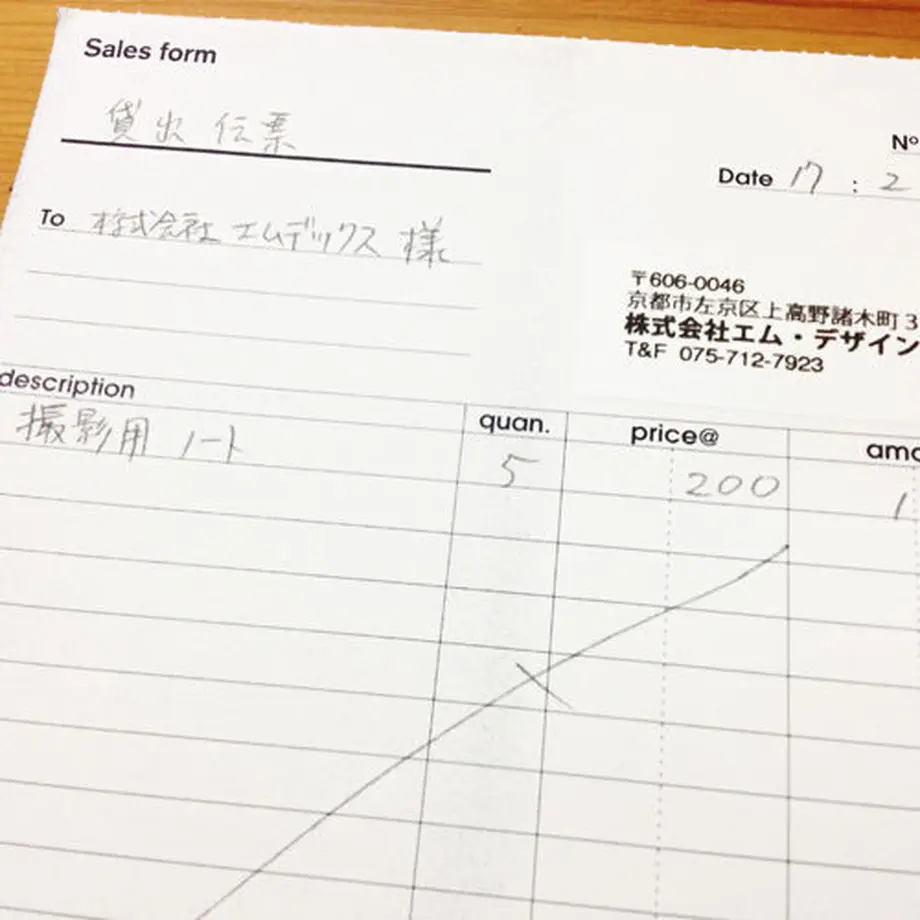 Sales form
貸出伝票
Nº
Date 17 : 2
To 株式会社エムデックス 様
〒606-0046
京都市左京区上高野諸木町3
株式会社エム・デザイン
T&F 075-712-7923
description quan. price@ amo
撮影用ノート 5 200 1